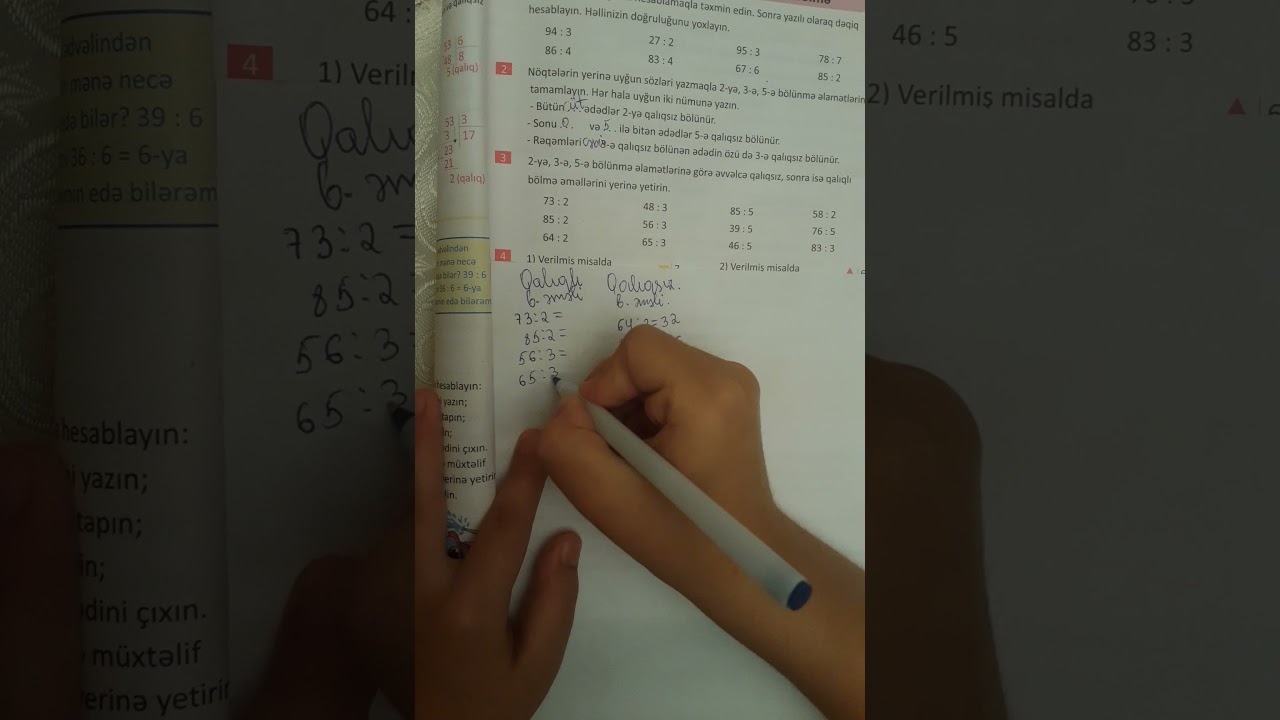 hesablamaqla təxmin edin. Sonra yazılı olaraq dəqiq
hesablayın. Həllinizin doğruluğunu yoxlayın.
94 : 3 27 : 2 95 : 3 78 : 7
86 : 4 83 : 4 67 : 6 85 : 2
2 Nöqtələrin yerinə uyğun sözləri yazmaqla 2-yə, 3-ə, 5-ə bölünmə əlamətlərin
tamamlayın. Hər hala uyğun iki nümunə yazın.
- Bütün cüt ədədlər 2-yə qalıqsız bölünür.
- Sonu 0. və 5. . ilə bitən ədədlər 5-ə qalıqsız bölünür.
- Rəqəmləri 3-ə qalıqsız bölünən ədədin özü də 3-ə qalıqsız bölünür.
3 2-yə, 3-ə, 5-ə bölünmə əlamətlərinə görə əvvəlcə qalıqsız, sonra isə qalıqlı
bölmə əməllərini yerinə yetirin.
73 : 2 48 : 3 85 : 5 58 : 2
85 : 2 56 : 3 39 : 5 76 : 5
64 : 2 65 : 3 46 : 5 83 : 3
4 1) Verilmiş misalda 2) Verilmiş misalda
Qalıqlı Qalıqsız.
b. əməli b. əməli.
73÷2= 64÷2=32
85÷2=
56÷3=
65÷3
53 6
48 8
5 (qalıq)
53 3
3 17
23
21
2 (qalıq)
ədvəlindən
ə mənə necə
da bilər? 39 : 6
36 : 6 = 6-ya
nın edə bilərəm
hesablayın:
yazın;
tapın;
in;
ədini çıxın.
müxtəlif
yerinə yetirin
64 :
46 : 5
83 : 3
4 1) Veril
2) Verilmiş misalda
73÷2=
85÷2
56÷3
65÷3